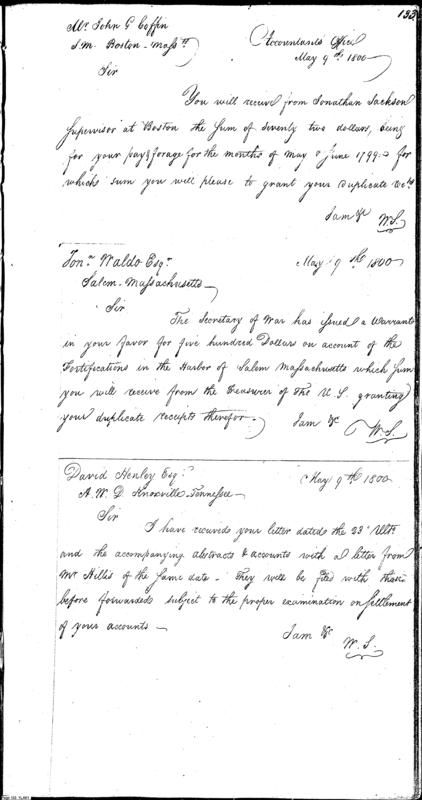 133
Mr. John G Coffin
S.M. Boston - Massts
Accountants Office
May 9th 1800
Sir
You will receive from Jonathan Jackson
Supervisor at Boston the sum of seventy two dollars, being
for your pay & forage for the months of May & June 1799. for
which sum you will please to grant your duplicate
I am &c
W.S.
Jonn Waldo Esqr
Salem - Massachusetts
May 9th 1800
Sir
The Secretary of War has issued a Warrant
in your favor for five hundred Dollars on account of the
Fortifications in the Harbor of Salem Massachusetts which sum
you will receive from the Treasurer of The U.S. granting
your duplicate receipts therefor.
I am &c
W.S.
David Henley Esqr
A.W.D. Knoxville Tennessee
May 9th 1800
Sir
I have received your letter dated the 23d Ulto
and the accompanying abstracts & accounts with a letter from
Mr Hillis of the same date - They will be filed with those
before forwarded subject to the proper examination on settlement
of your accounts
I am &c
W.S.